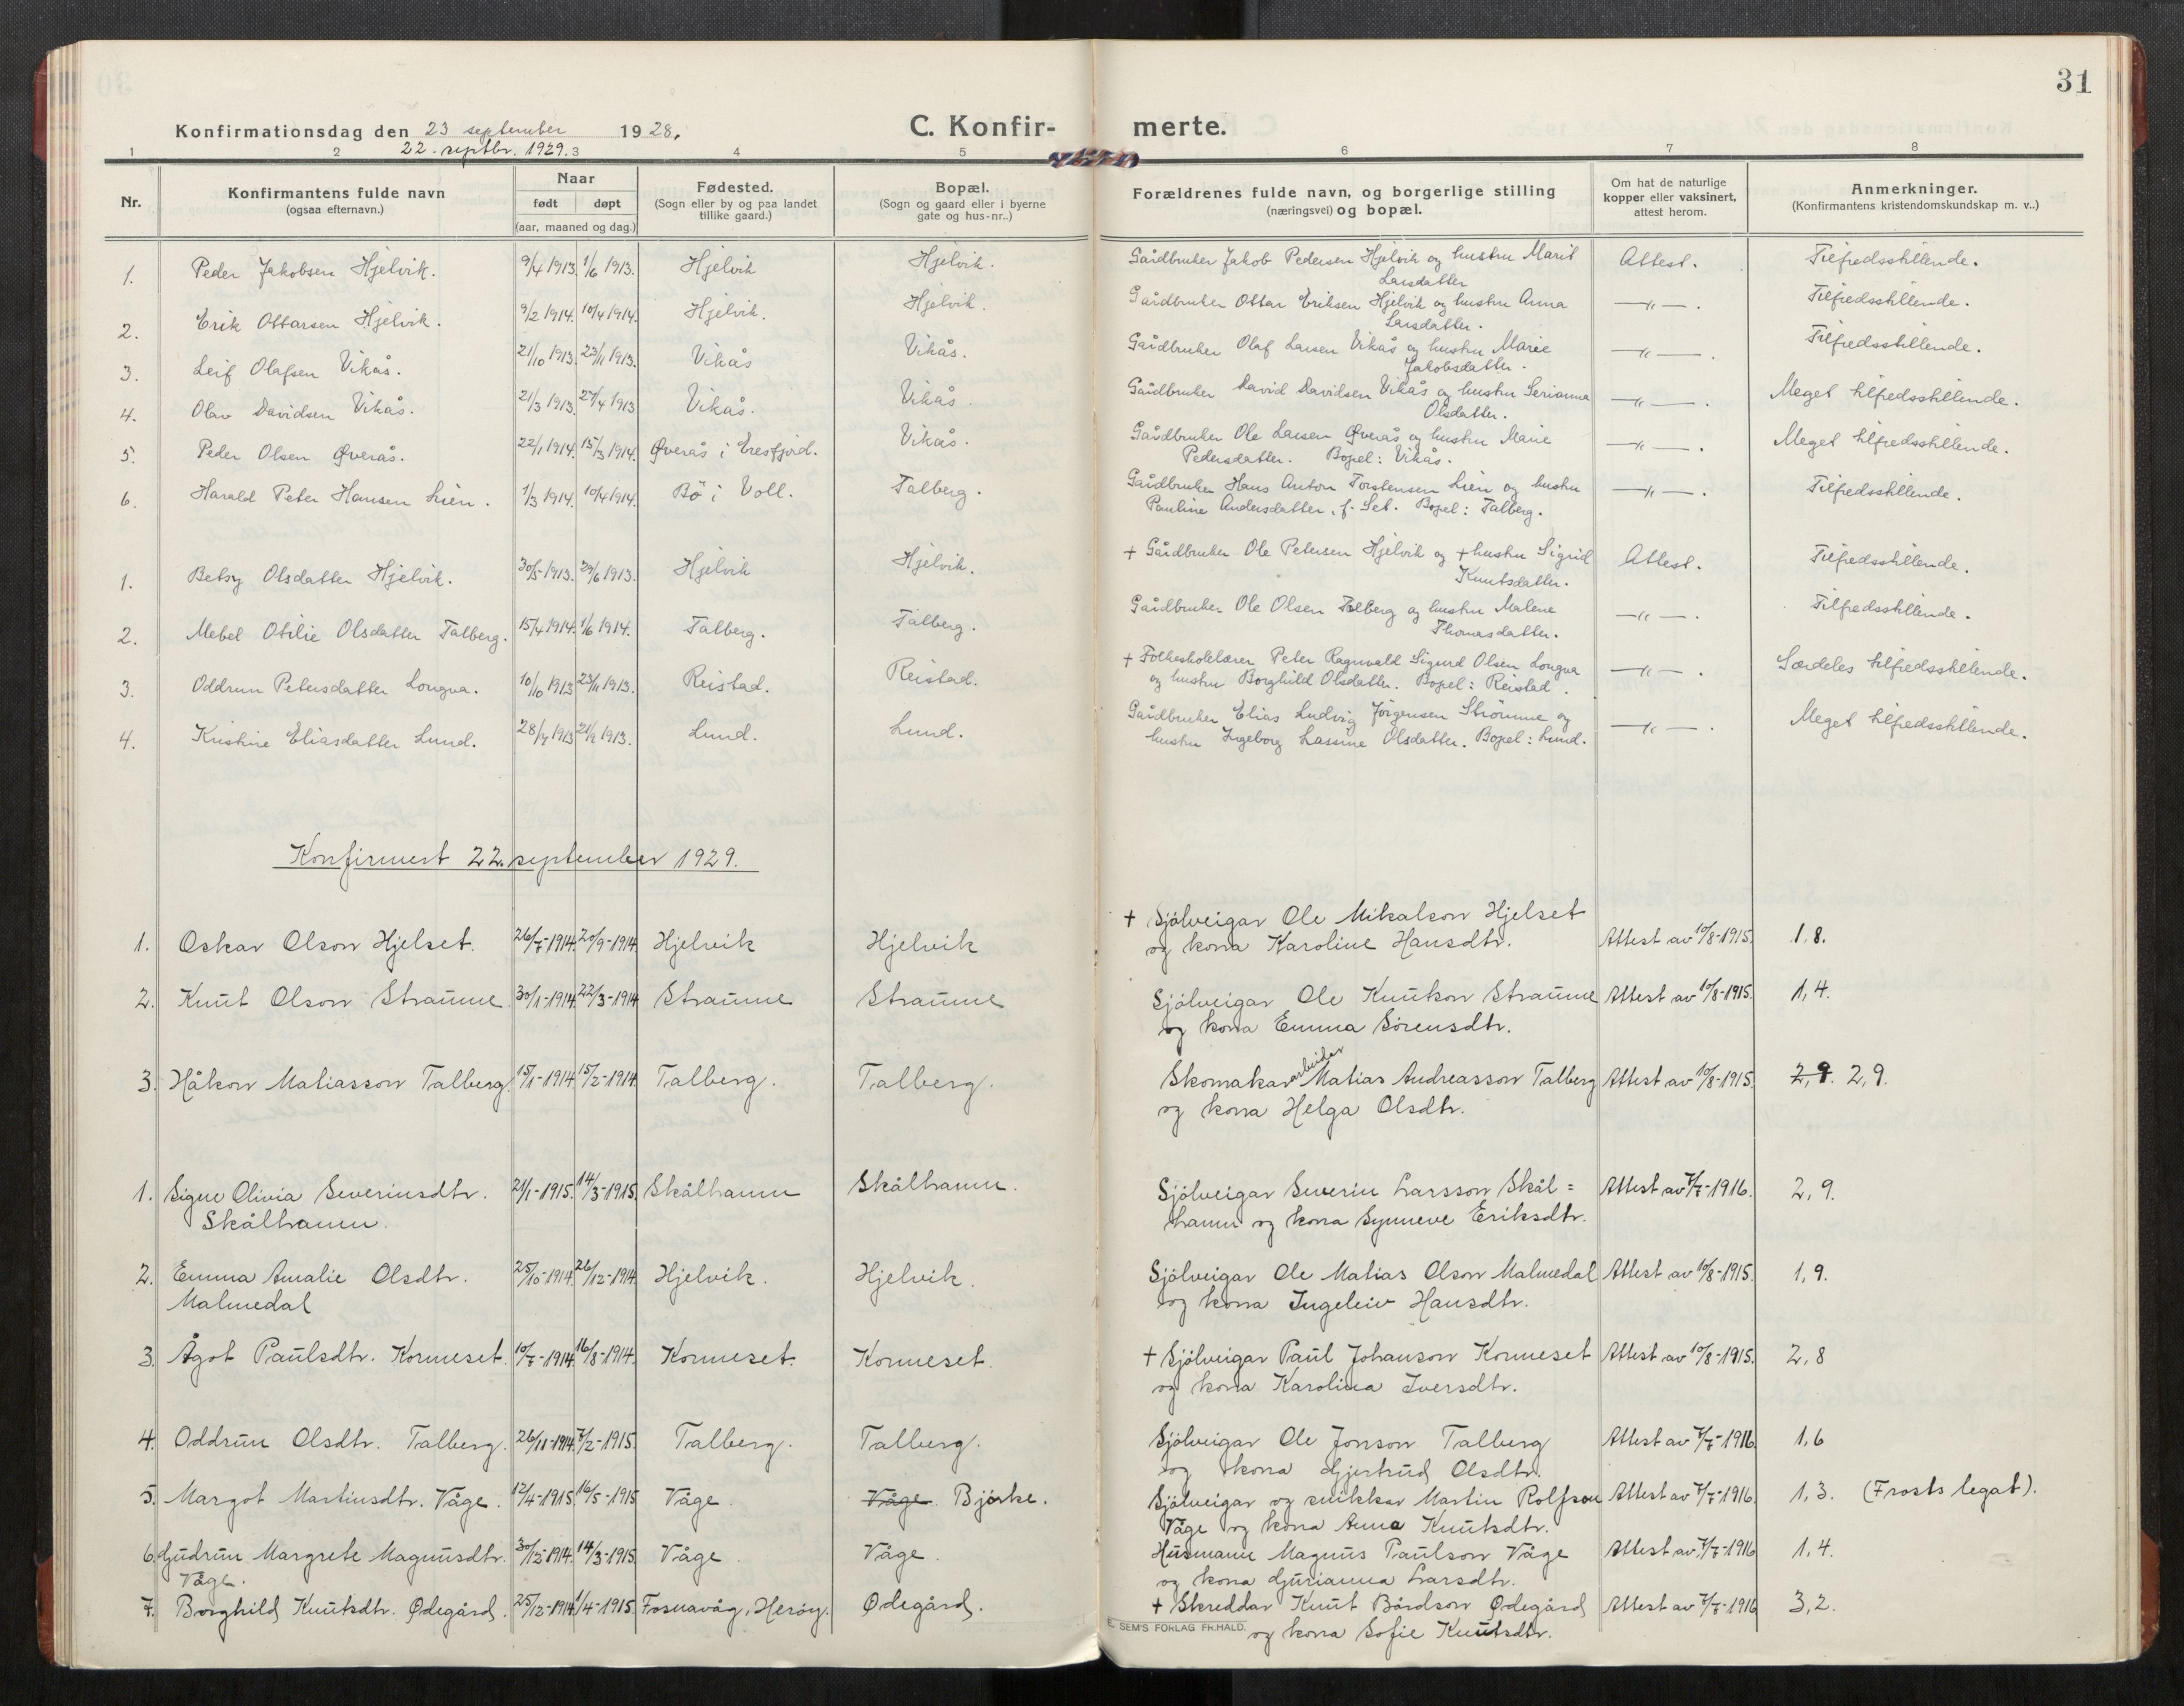 31
Konfirmationsdag den 23 september 1928.
22. septbr. 1929.
C. Konfir-
merte.
1 2 3 4 5 6 7 8
Nr. Konfirmantens fulde navn (ogsaa efternavn.) Naar født døpt (aar, maaned og dag.) Fødested. (Sogn eller by og paa landet tillike gaard.) Bopæl. (Sogn og gaard eller i byerne gate og hus-nr..) Forældrenes fulde navn, og borgerlige stilling (næringsvei) og bopæl. Om hat de naturlige kopper eller vaksinert, attest herom. Anmerkninger. (Konfirmantens kristendomskundskap m. v..)
1. Peder Jakobsen Hjelvik. 9/4 1913. 1/6 1913. Hjelvik Hjelvik. Gårdbruker Jakob Pedersen Hjelvik og hustru Marit Attest. Tilfredsstillende.
Larsdatter
2. Erik Ottarsen Hjelvik. 9/2 1914. 10/4 1914. Hjelvik. Hjelvik. Gårdbruker Ottar Eriksen Hjelvik og hustru Anna —"—. Tilfredsstillende.
Larsdatter.
3. Leif Olafsen Vikås. 21/10 1913. 23/11 1913. Vikås Vikås. Gårdbruker Olaf Larsen Vikås og hustru Marie —"—. Tilfredsstillende.
Jakobsdatter.
4. Olav Davidsen Vikås. 21/3 1913. 27/4 1913 Vikås. Vikås. Gårdbruker David Davidsen Vikås og hustru Serianna —"—. Meget tilfredsstillende.
Olsdatter.
5. Peder Olsen Øverås. 22/1 1914. 15/3 1914. Øverås i Eresfjord. Vikås. Gårdbruker Ole Larsen Øverås og hustru Marie —"—. Meget tilfredsstillende.
Pedersdatter. Bopel: Vikås.
6. Harald Peter Hansen Lien. 1/3 1914. 10/4 1914. Bö i Voll. Talberg. Gårdbruker Hans Anton Torstensen Lien og hustru —"—. Tilfredsstillende.
Pauline Andersdatter, f. Set. Bopel: Talberg.
1. Betsy Olsdatter Hjelvik. 30/5 1913. 29/6 1913. Hjelvik Hjelvik. + Gårdbruker Ole Petersen Hjelvik og + hustru Sigrid Attest. Tilfredsstillende.
Knutsdatter.
2. Mebel Otilie Olsdatter Talberg. 15/4 1914. 1/6 1914. Talberg. Talberg. Gårdbruker Ole Olsen Talberg og hustru Malene —"—. Tilfredsstillende.
Thomasdatter.
3. Oddrun Petersdatter Longva. 10/10 1913 23/11 1913. Reistad. Reistad. + Folkeskolelærer Peter Ragnvald Sigurd Olsen Longva —"—. Særdeles tilfredsstillende.
og hustru Borghild Olsdatter. Bopel: Reistad.
4. Kristine Eliasdatter Lund. 1913 1913. Lund. Lund. Gårdbruker Elias Ludvig Jörgensen Strömme og —"—. Meget tilfredsstillende.
hustru Ingeborg Lassine Olsdatter. Bopel: Lund.
Konfirmert 22. september 1929.
+ Sjölveigar Ole Mikalson Hjelset
1. Oskar Olson Hjelset. 26/7-1914. 20/9-1914 Hjelvik Hjelvik og kona Karoline Hansdtr. Attest av 10/8-1915. 1,8.
2. Knut Olson Straume 30/1-1914. 22/3-1914 Straume Straume Sjölveigar Ole Knutson Straume Attest av 10/8-1915. 1,4.
og kona Emma Sörensdtr.
3. Håkon Matiasson Talberg. 15/1-1914 15/2-1914 Talberg. Talberg. Skomakararbeidar Matias Andreasson Talberg Attest av 10/8-1915. 2,9. 2,9.
og kona Helga Olsdtr.
1. Signe Olivia Severinsdtr. 21/1-1915. 14/3-1915. Skålhamn Skålhamn. Sjölveigar Severin Larsson Skål= Attest av 7/7-1916. 2,9.
Skålhamn. hamn og kona Synneve Eriksdtr.
2. Emma Amalie Olsdtr. 25/10-1914. 26/12-1914 Hjelvik. Hjelvik. Sjölveigar Ole Matias Olson Malmedal Attest av 10/8-1915. 1,9.
Malmedal og kona Ingeleiv Hansdtr.
3. Ågot Paulsdtr. Korneset. 10/7-1914 16/8-1914. Korneset. Korneset. + Sjölveigar Paul Johanson Korneset Attest av 10/8-1915. 2,8
og kona Karolina Iversdtr.
4. Oddrun Olsdtr. Talberg. 26/11-1914. 7/2-1915. Talberg. Talberg. Sjölveigar Ole Jonson Talberg Attest av 7/7-1916. 1,6
og kona Gjertrud Olsdtr.
5. Margot Martinsdtr. Våge. 12/4-1915. 16/5-1915 Våge. Våge. Björke. Sjölveigar og snikkar Martin Rolfson Attest av 7/7-1916. 1,3. (Frosts legat).
Våge og kona Anna Knutsdtr.
6. Gudrun Margrete Magnusdtr. 30/12-1914. 14/3-1915. Våge. Våge. Husmann Magnus Paulson Våge Attest av 7/7-1916 1,4.
Våge. og kona Gurianna Larsdtr.
7. Borghild Knutsdtr. Ødegård. 25/12-1914. 1/4-1915. Fosnavåg, Heröy. Ødegård. + Skreddar Knut Bårdson Ødegård Attest av 7/7-1916 3,2.
E. SEM'S FORLAG FR.HALD. og kona Sofie Knutsdtr.